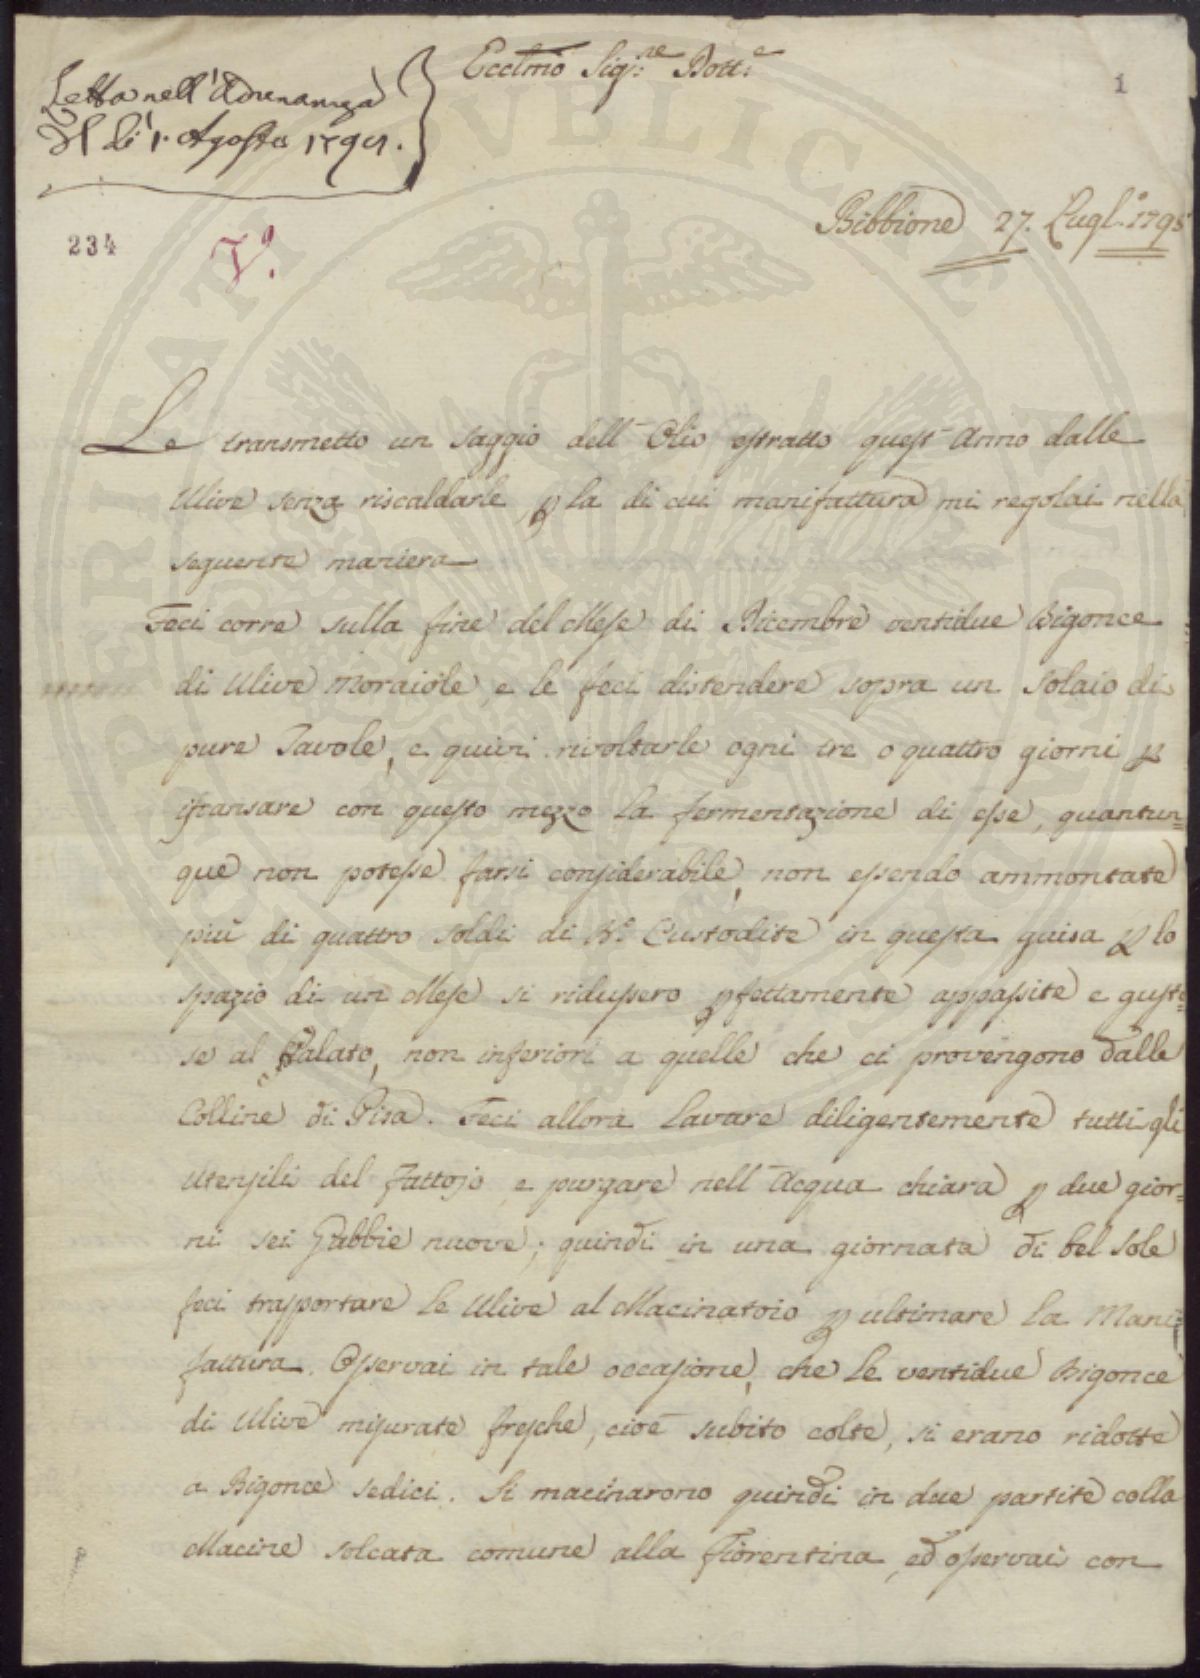 Eccl̅mo Sig:re Dott:e
1
Letta nell'Adunanza
Del dì 1. Agosto 1795.
Bibbione 27. Lugl.o 1795
234
V.o
PROSPERITATI PVBLICAE AVGENDAE
Le transmetto un saggio dell'Olio estratto quest'Anno dalle
Ulive senza riscaldarle, p la di cui manifattura mi regolai nella
seguente maniera
Feci corre sulla fine del Mese di Dicembre ventidue Bigonce
di Ulive moraiole, e le feci distendere sopra un Solaio di
pure Tavole, e quivi rivoltarle ogni tre o quattro giorni p
iscansare con questo mezzo la fermentazione di esse, quantun=
que non potesse farsi considerabile, non essendo ammontate
più di quattro soldi di B.o Custodite in questa guisa p lo
spazio di un Mese si ridussero pfettamente appassite e gusto=
se al Palato, non inferiori a quelle che ci provengono dalle
Colline di Pisa. Feci allora lavare diligentemente tutti gli
Utensili del Fattojo, e purgare nell'Acqua chiara p due gior=
ni sei Gabbie nuove; quindi in una giornata di bel Sole
feci trasportare le Ulive al Macinatoio p ultimare la Mani=
fattura. Osservai in tale occasione, che le ventidue Bigonce
di Ulive misurate fresche, cioè subito colte, si erano ridotte
a Bigonce sedici. Si macinarono quindi in due partite colla
Macine solcata comune alla Fiorentina, ed osservai con